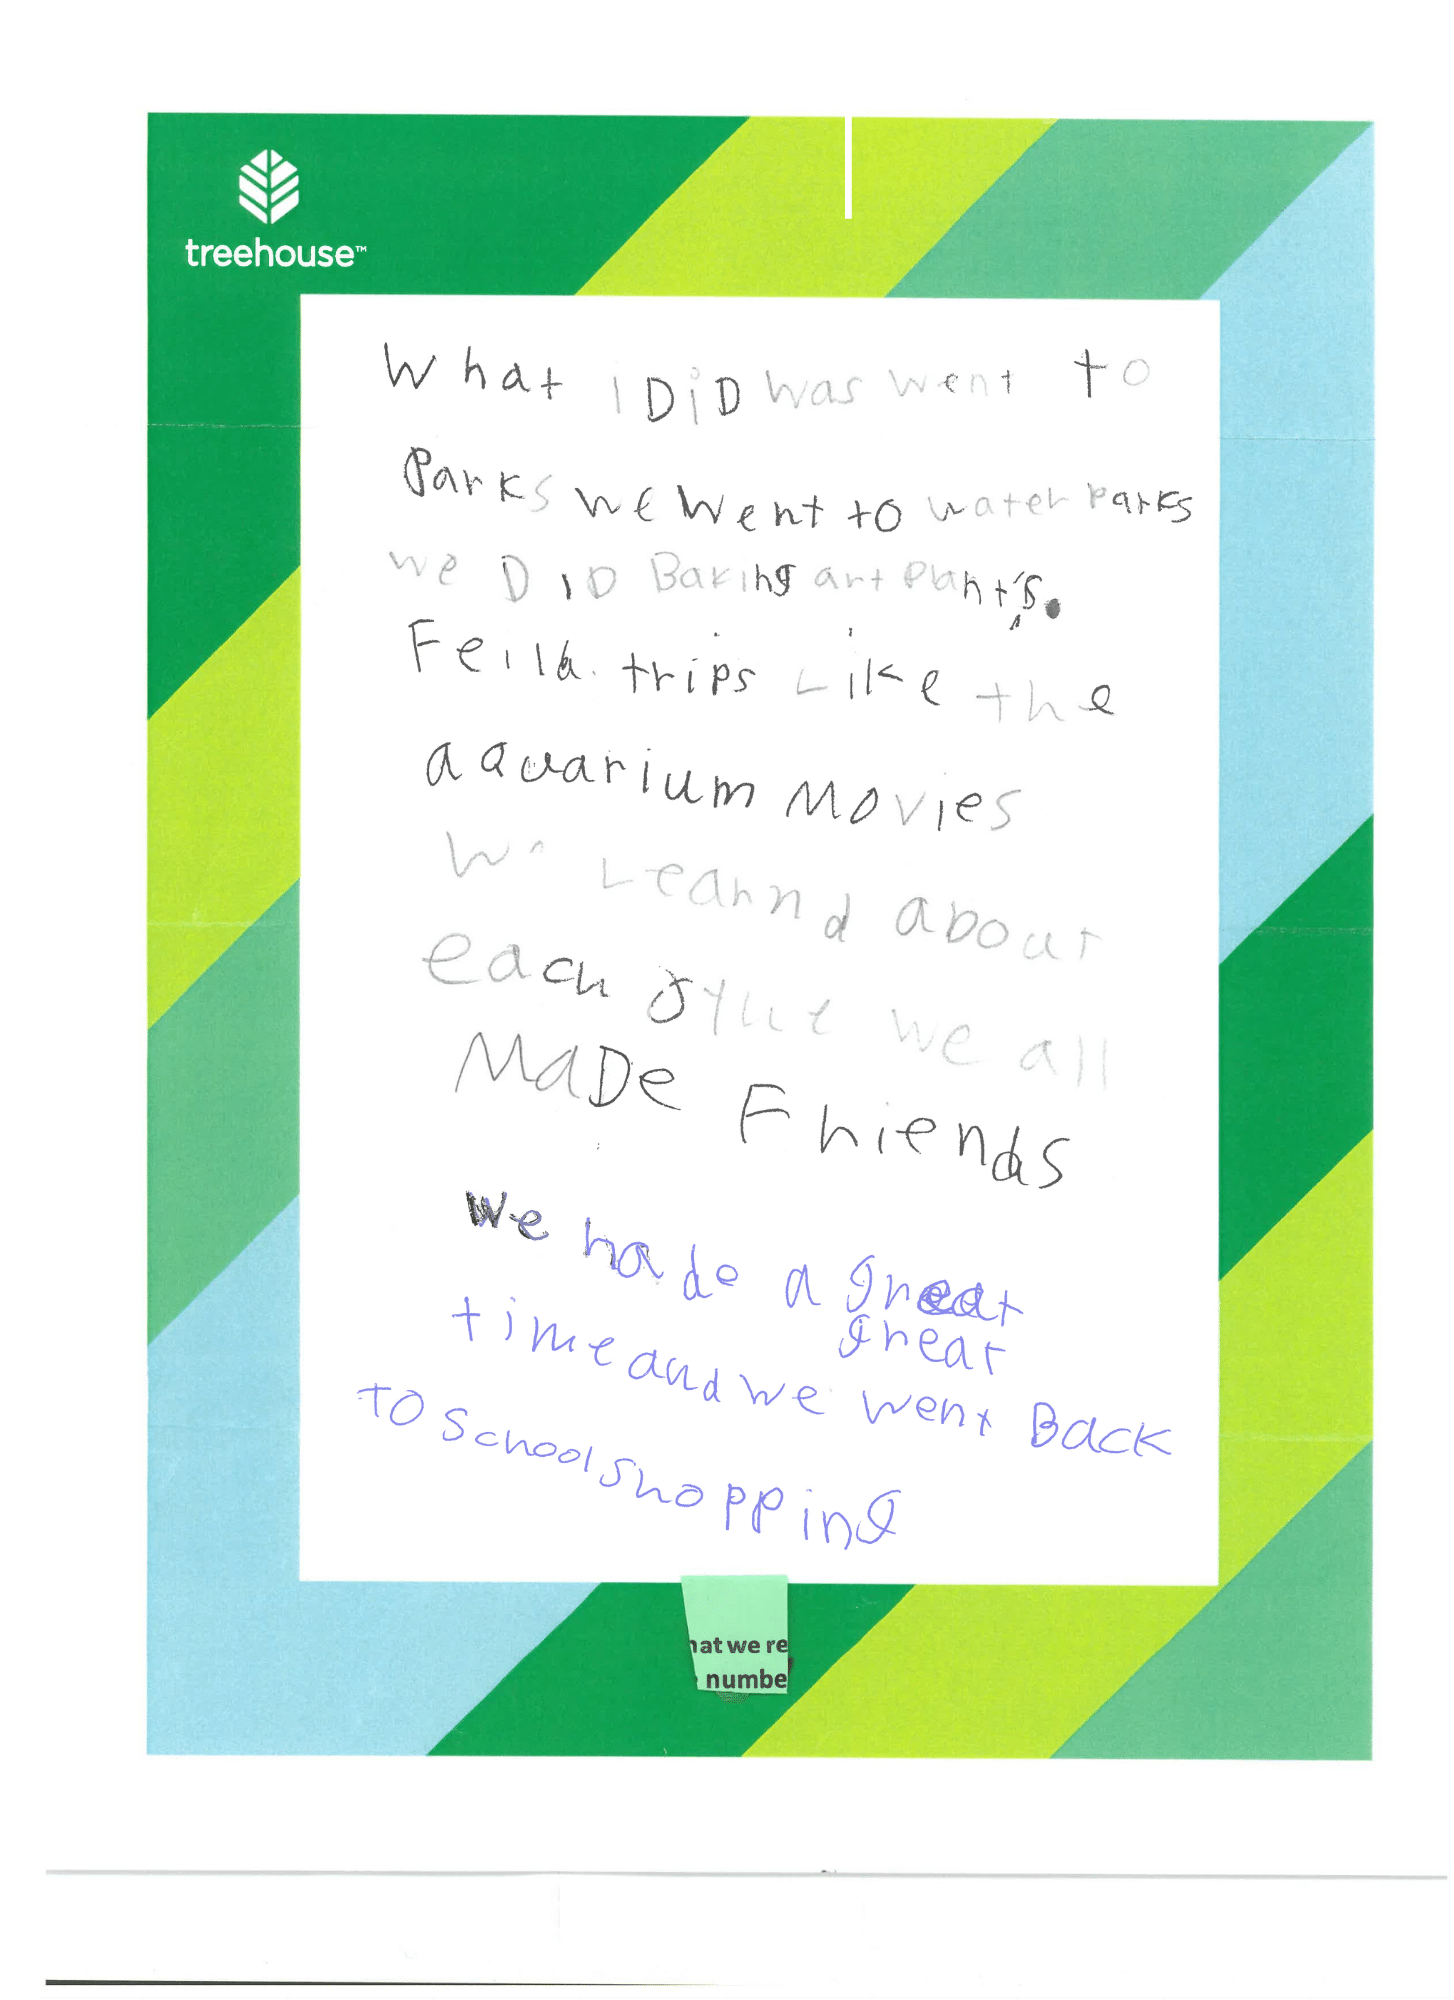 treehouse™
What i DiD was went to
Parks we went to water parks
we DiD Baking art Plant's.
Feild trips Like the
aquarium Movies
We Learnd about
each we all
MaDe Friends
We hade a great
great
time and we went Back
TO School shopping
hat we re
numbe